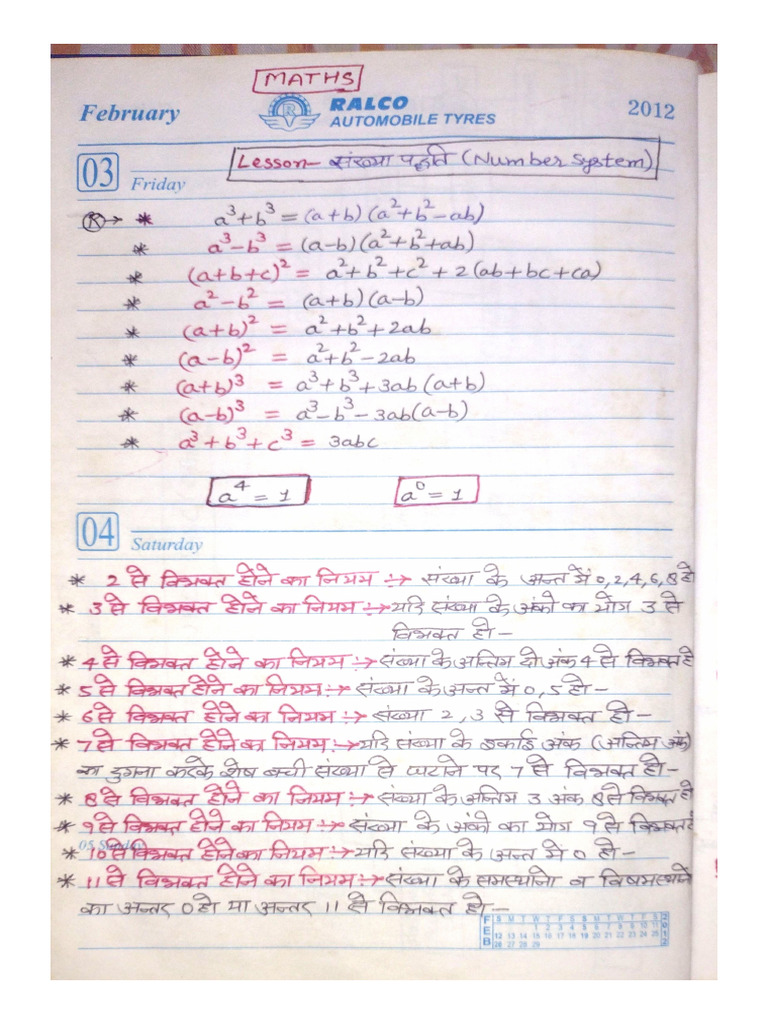 MATHS
February
RALCO
AUTOMOBILE TYRES
2012
03 Friday
Lesson- संख्या पद्धति (Number System)
(R)→ * a³+b³ = (a+b) (a²+b²-ab)
* a³-b³ = (a-b) (a²+b²+ab)
* (a+b+c)² = a²+b²+c²+2(ab+bc+ca)
* a²-b² = (a+b) (a-b)
* (a+b)² = a²+b²+2ab
* (a-b)² = a²+b²-2ab
* (a+b)³ = a³+b³+3ab(a+b)
* (a-b)³ = a³-b³-3ab(a-b)
* a³+b³+c³ = 3abc
a⁴ = 1 a⁰ = 1
04 Saturday
* 2 से विभक्त होने का नियम :→ संख्या के अन्त में 0,2,4,6,8 हो
* 3 से विभक्त होने का नियम :→ यदि संख्या के अंको का योग 3 से
विभक्त हो -
* 4 से विभक्त होने का नियम :→ संख्या के अन्तिम दो अंक 4 से विभक्त हो
* 5 से विभक्त होने का नियम :→ संख्या के अन्त में 0,5 हो -
* 6 से विभक्त होने का नियम :→ संख्या 2,3 से विभक्त हो -
* 7 से विभक्त होने का नियम :→ यदि संख्या के इकाई अंक (अन्तिम अंक)
का दुगना करके शेष बची संख्या से घटाने पर 7 से विभक्त हो -
* 8 से विभक्त होने का नियम :→ संख्या के अन्तिम 3 अंक 8 से विभक्त हो
* 9 से विभक्त होने का नियम :→ संख्या के अंको का योग 9 से विभक्त हो
05 Sunday
* 10 से विभक्त होने का नियम :→ यदि संख्या के अन्त में 0 हो -
* 11 से विभक्त होने का नियम :→ संख्या के समस्थानो व विषमस्थाने
का अन्तर 0 हो या अन्तर 11 से विभक्त हो -
FEB S M T W T F S S M T W T F S 2012
1 2 3 4 5 6 7 8 9 10 11
12 13 14 15 16 17 18 19 20 21 22 23 24 25
26 27 28 29